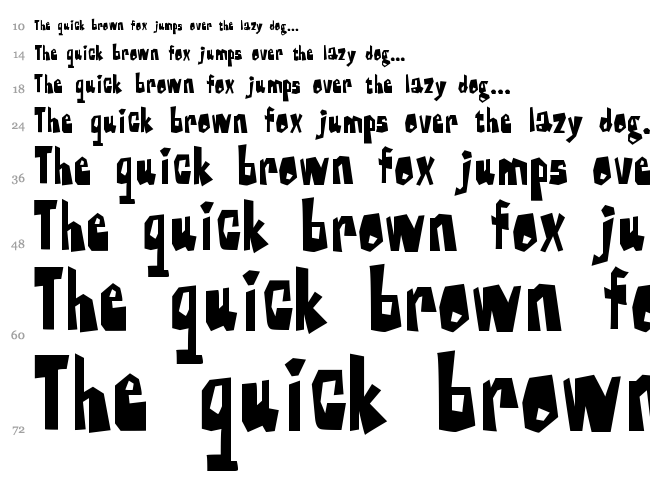 10 The quick brown fox jumps over the lazy dog...
14 The quick brown fox jumps over the lazy dog...
18 The quick brown fox jumps over the lazy dog...
24 The quick brown fox jumps over the lazy dog.
36 The quick brown fox jumps ove
48 The quick brown fox ju
60 The quick brown fo
72 The quick brown